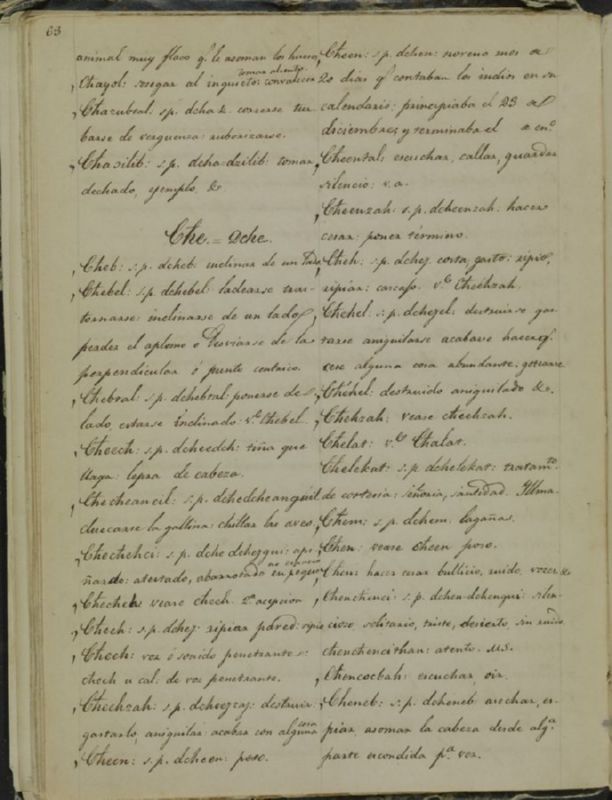 63
animal muy flaco q.e le asoman los hueso
Chayol: sosegar al inquieto: convalecer
tomar aliento
Chazubsal: s.p. dchaz. correrse tur
barse de verguenza: ruborizarse.
Chasilib: s.p. dcha-dzilib: tomar
dechado, ejemplo &
Che = Dche.
Cheb: s.p. dcheb. inclinar de un lado
Chebel: s.p. dchebel ladearse tras-
tornarse: inclinarse de un lado
perder el aplomo o desviarse de la
perpendicular ó punto centrico.
Chebsal: s.p. dchebsal ponerse de
lado, estarse inclinado. v.e Chebel.
Cheech: s.p. dcheedch: tiña que
llaga: lepra de cabeza.
Checheancil: s.p. dchedcheanguil
cluecarse la gallina: chillar las aves
Chechehci: s.p. dche dchezqui: api-
ñarse: atestado, abarrotado en pequeño
no espacio
Cheche vease chech. 2.a acepcion
Chech: s.p. dchez: ripiar pared: ripio
Chech: voz ó sonido penetrante
chech u cal: de voz penetrante.
Chechzah: s.p. dchezzaj: destruir
gastarlo, aniquilar: acabar con alguna
cosa
Cheen: s.p. dcheen: poso.
Cheen: s.p. dchen: noveno mes de
20 dias q.e contaban los indios en su
calendario: principiaba el 23 de
diciembre, y terminaba el en.o
Cheental: escuchar, callar, guardar
silencio: v.a.
Cheenzah: s.p. dcheenzah: hacer
cesar: poner término.
Cheh: s.p. dchej. costa, gasto: ripio,
ripiar: cascajo. v.e Cheehzah.
Chehel: s.p. dchejel: destruirse gas
tarse aniquilarse acabarse hacerse
cese alguna cosa abundante: gozarse
Chehel: destruido aniquilado &.
Chehzah: vease cheehzah.
Chelat: v.e Chalat.
Chelekat: s.p. dchelekat: tratam.to
de cortesia: señoria, santidad. Yllma.
Chem: s.p. dchem: lagañas.
Chen: vease cheen poso.
Chen: hacer cesar bullicio, ruido, voces &
Chenchenci: s.p. dchen-dchenqui: silen-
cioso solitario, triste, desierto sin ruido.
chenchencithan: atento. u.s.
Chencocbah: escuchar, oir.
Cheneb: s.p. dcheneb asechar, es-
piar, asomar la cabeza desde alg.a
parte escondida p.a ver.